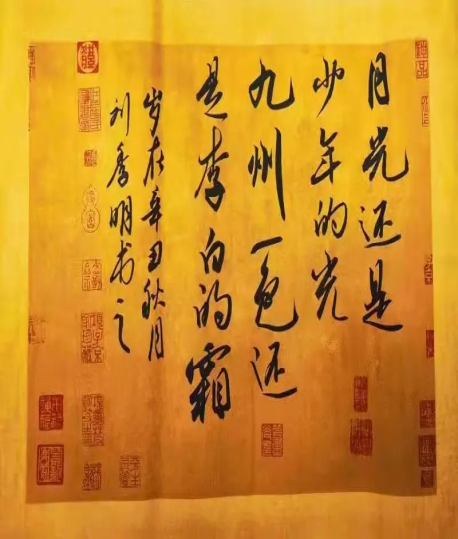 月光还是
少年的光
九州一色还
是李白的霜
岁在辛丑秋月
刘秀明书之